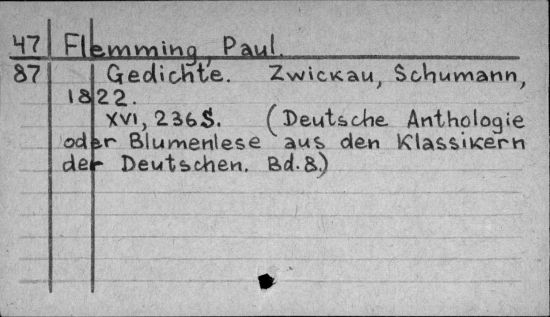 47 Flemming, Paul.
87 Gedichte. Zwickau, Schumann,
1822.
XVI, 236 S. (Deutsche Anthologie
oder Blumenlese aus den Klassikern
der Deutschen. Bd. 8.)